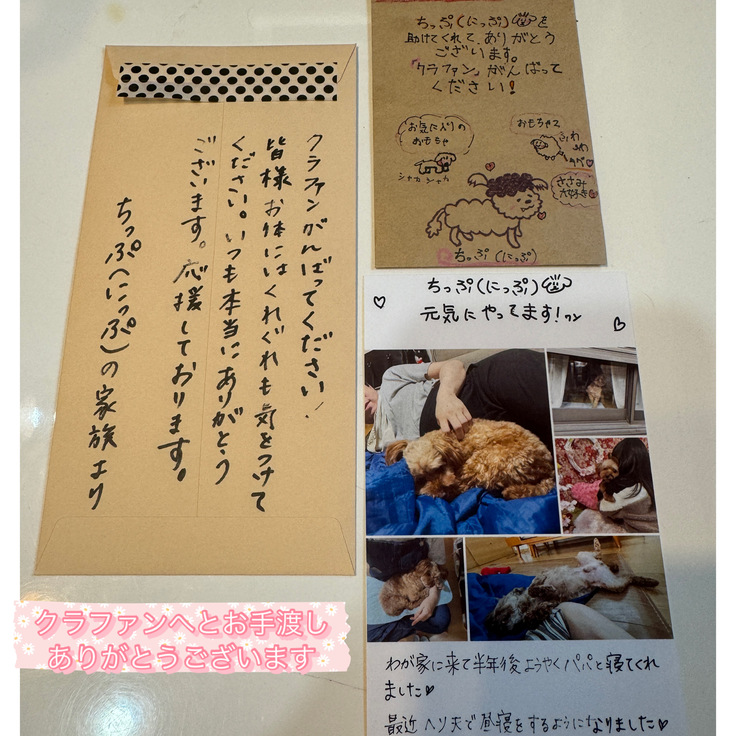 クラファンがんばってください！
皆様お体にはくれぐれも気をつけて
ください。いつも本当にありがとう
ございます。応援しております。
ちっぷ(にっぷ)の家族より
ちっぷ(にっぷ)を
助けてくれて、ありがとう
ございます。
「クラファン」がんばって
ください！
お気に入りの
おもちゃ
シャカシャカ
おもちゃ2
ふわ
ふわ
ささみ
大好き
ちっぷ(にっぷ)
ちっぷ(にっぷ)
元気にやってます！ワン
わが家に来て半年後ようやくパパと寝てくれ
ました♡
最近ヘソ天で昼寝をするようになりました♡
クラファンへとお手渡し
ありがとうございます